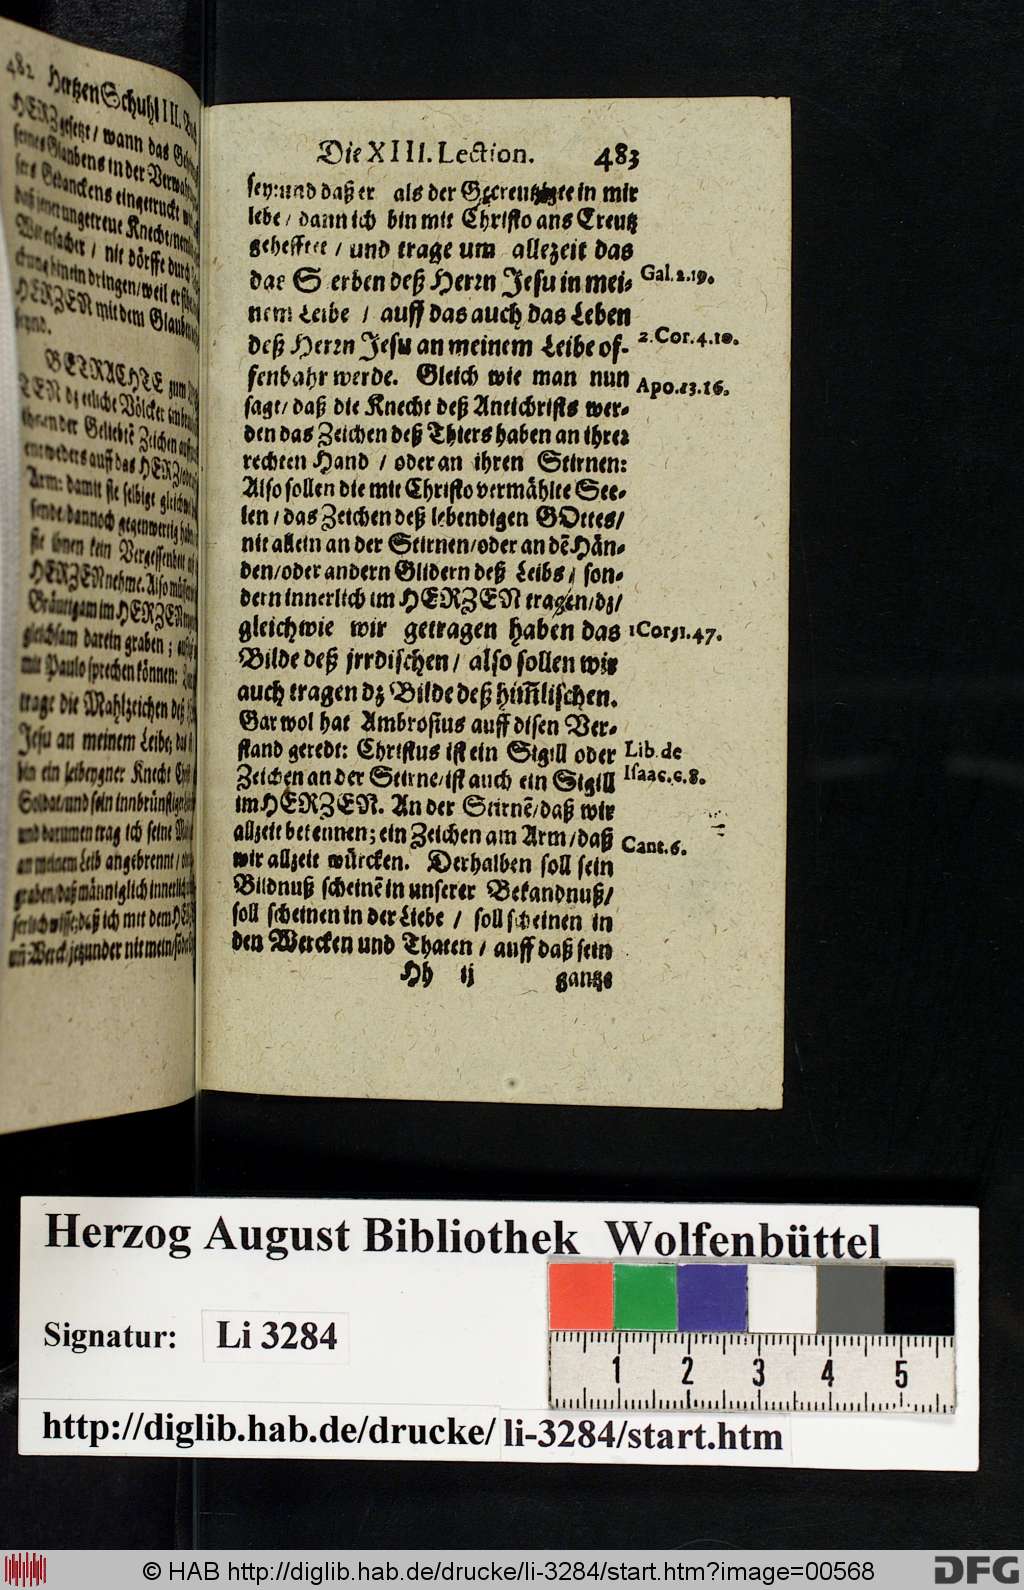 482 Hertzen Schuhl III.
HERZ gesetzt / wann das
seines Glaubens in der
sers Gedanckens eingetruckt
daß jener ungetreue Knecht /
Widersacher / nit dörffe durch
hinein dringen / weil er
HERZEN mit dem Glauben
BETRACHTE zum
TEN dz etliche Völcker
ihnen der Geliebtē Zeichen
entweders auff das HERZ
Arm: damit sie selbige
sende dannoch gegenwertig
sie ihnen kein Vergessenheit
HERZEN nehme. Also müssen
Bräutigam im HERZEN
gleichsam darein graben;
mit Paulo sprechen können:
trage die Mahlzeichen deß
Jesu an meinem Leibe;
bin ein leibeygner Knecht
Soldat / und sein
und darumen trag ich seine
an meinem Leib angebrennt /
graben / daß männiglich
wisse / daß ich mit dem
Werck jetzunder nit mein /
Die XIII. Lection. 483
sey: und daß er als der Gecreutzigte in mir
lebe / dann ich bin mit Christo ans Creutz
gehefftet / und trage um allezeit das
das Sterben deß Herrn Jesu in mei- Gal. 2.19.
nem Leibe / auff das auch das Leben
deß Herrn Jesu an meinem Leibe of- 2. Cor. 4.10.
fenbahr werde. Gleich wie man nun Apo. 13. 16.
sagt / daß die Knecht deß Antichrists wer-
den das Zeichen deß Thiers haben an ihrer
rechten Hand / oder an ihren Stirnen:
Also sollen die mit Christo vermählte See-
len / das Zeichen deß lebendigen GOttes /
nit allein an der Stirnen / oder an dē Hän-
den / oder andern Glidern deß Leibs / son-
dern innerlich im HERZEN tragen / dz /
gleichwie wir getragen haben das 1 Cor. 47.
Bilde deß jrrdischen / also sollen wir
auch tragen dz Bilde deß him̄lischen.
Gar wol hat Ambrosius auff disen Ver-
stand geredt: Christus ist ein Sigill oder Lib. de
Zeichen an der Stirne / ist auch ein Sigill Isaac. c. 8.
im HERZEN. An der Stirnē / daß wir
allzeit bekennen; ein Zeichen am Arm / daß Cant. 6.
wir allzeit würcken. Derhalben soll sein
Bildnuß scheinē in unserer Bekandnuß /
soll scheinen in der Liebe / soll scheinen in
den Wercken und Thaten / auff daß sein
Hh ij gantze
Herzog August Bibliothek Wolfenbüttel
Signatur: Li 3284
1 2 3 4 5
http://diglib.hab.de/drucke/ li-3284/start.htm
© HAB http://diglib.hab.de/drucke/li-3284/start.htm?image=00568
DFG